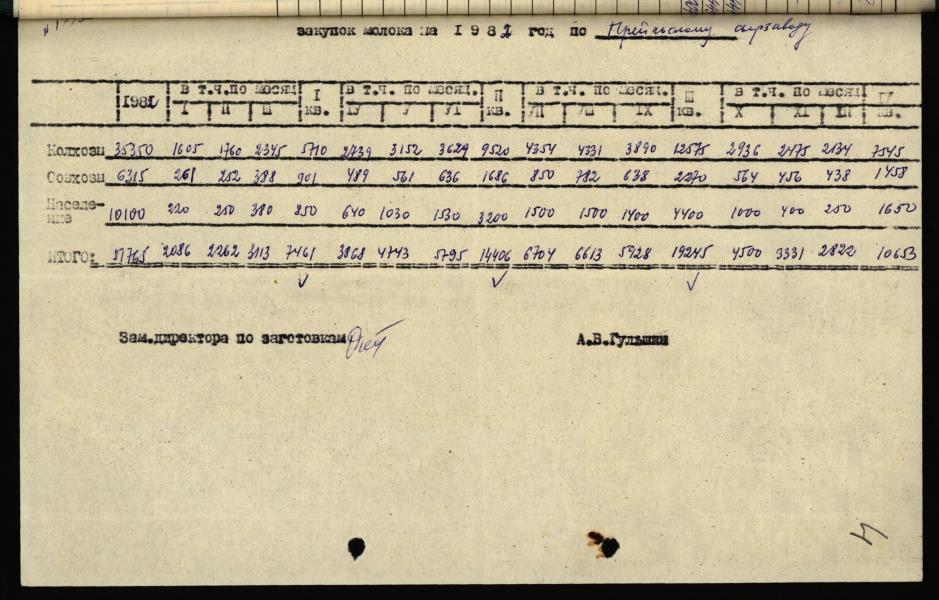 закупок молока на 1982 год по Прейльскому сырзаводу
1982 в т.ч.по месяц I в т.ч. по месяц. II в т.ч. по месяц. III в т.ч. по месяц IV
I II III кв. IV V VI кв. VII VIII IX кв. X XI XII кв.
Колхозы 35350 1605 1760 2345 5710 2739 3152 3629 9520 4354 4331 3890 12575 2936 2475 2134 7545
Совхозы 6315 261 252 388 901 489 561 636 1686 850 782 638 2270 564 456 438 1458
Населе-
ние 10100 220 250 380 850 640 1030 1530 3200 1500 1500 1400 4400 1000 400 250 1650
ИТОГО: 51765 2086 2262 3113 7461 3868 4743 5795 14406 6704 6613 5928 19245 4500 3331 2822 10653
Зам.директора по заготовкам А.В.Гульшин
4